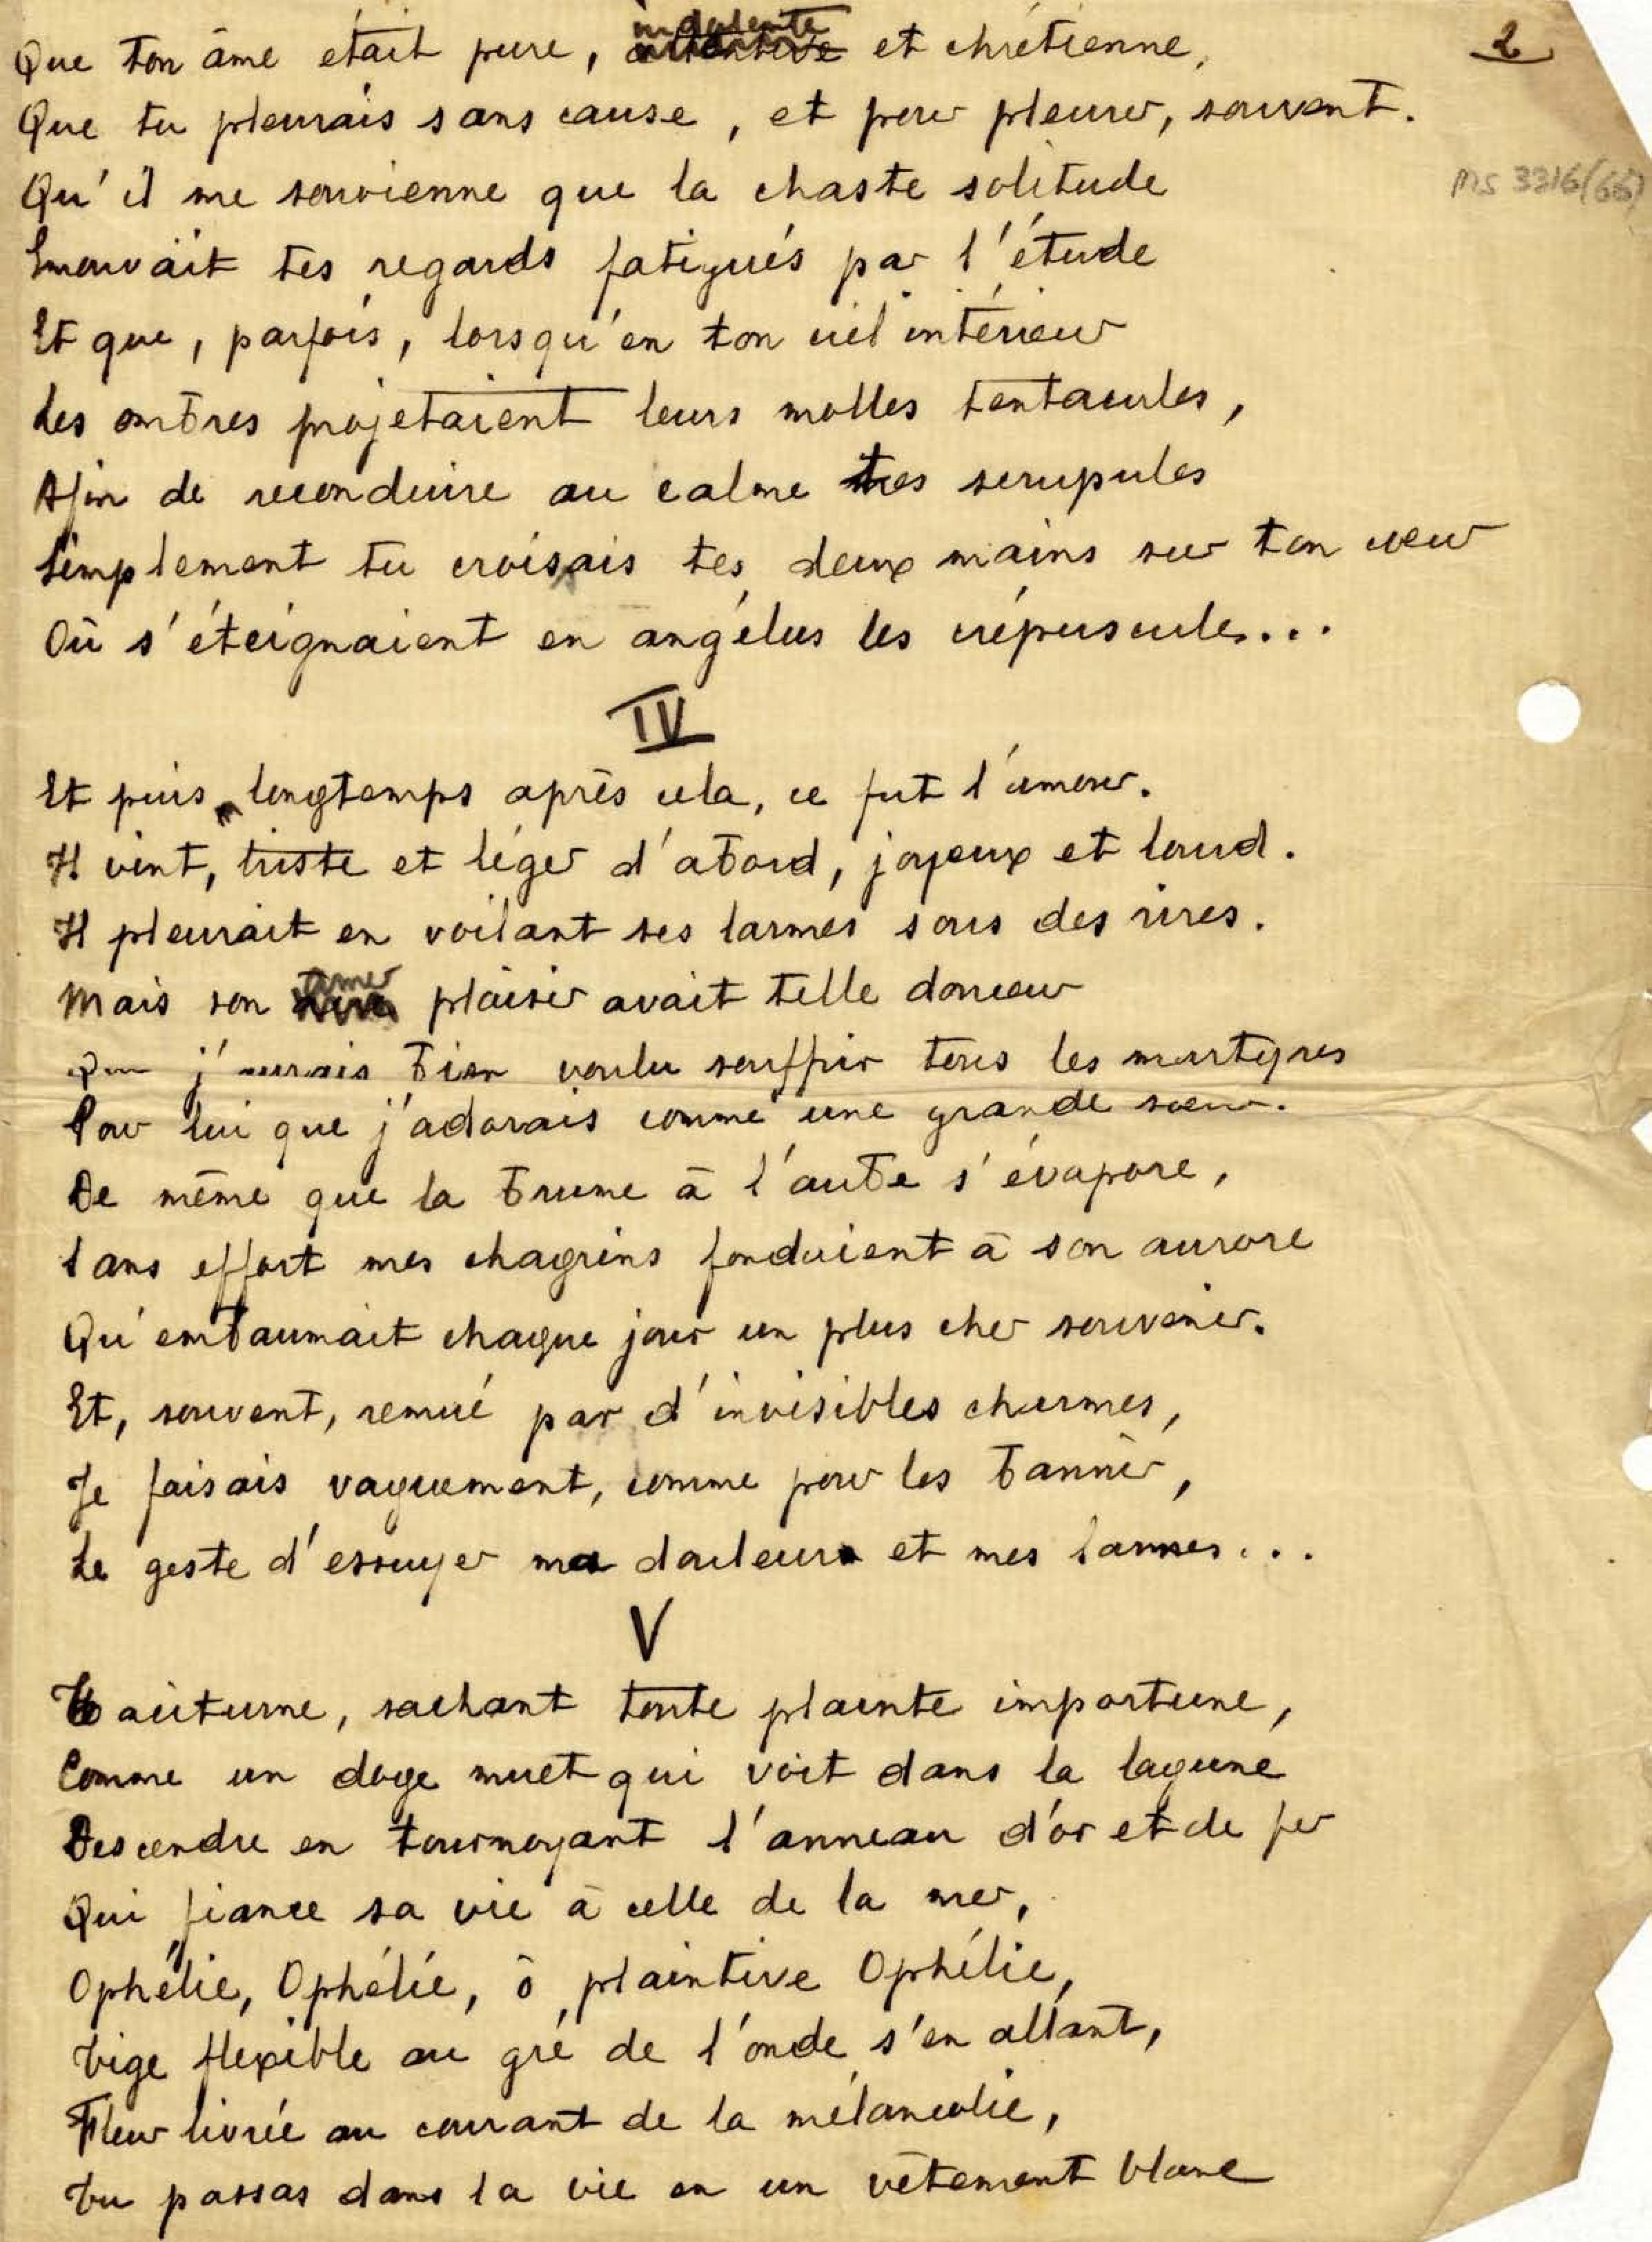 Que ton âme était pure, indolente et chrétienne,
2
Que tu pleurais sans cause, et pour pleurer, souvent.
Qu'il me souvienne que la chaste solitude
MS 3316(66)
Émouvait tes regards fatigués par l'étude
Et que, parfois, lorsqu'en ton ciel intérieur
Les ombres projetaient leurs molles tentacules,
Afin de reconduire au calme tes scrupules
Simplement tu croisais tes deux mains sur ton cœur
Où s'éteignaient en angélus les crépuscules...
IV
Et puis longtemps après cela, ce fut l'amour.
Il vint, triste et léger d'abord, joyeux et lourd.
Il pleurait en voilant ses larmes sous des rires.
Mais son amer plaisir avait telle douceur
Que j'aurais bien voulu souffrir tous les martyres
Pour lui que j'adorais comme une grande sœur.
De même que la brume à l'aube s'évapore,
Sans effort mes chagrins fondaient à son aurore
Qu'embaumait chaque jour un plus cher souvenir.
Et, souvent, remué par d'invisibles charmes,
Je faisais vaguement, comme pour les bannir,
Le geste d'essuyer ma douleur et mes larmes...
V
Taciturne, sachant toute plainte importune,
Comme un doge muet qui voit dans la lagune
Descendre en tournoyant l'anneau d'or et de fer
Qui fiance sa vie à celle de la mer,
Ophélie, Ophélie, ô plaintive Ophélie,
Tige flexible au gré de l'onde s'en allant,
Fleur livrée au courant de la mélancolie,
Tu passas dans la vie en un vêtement blanc